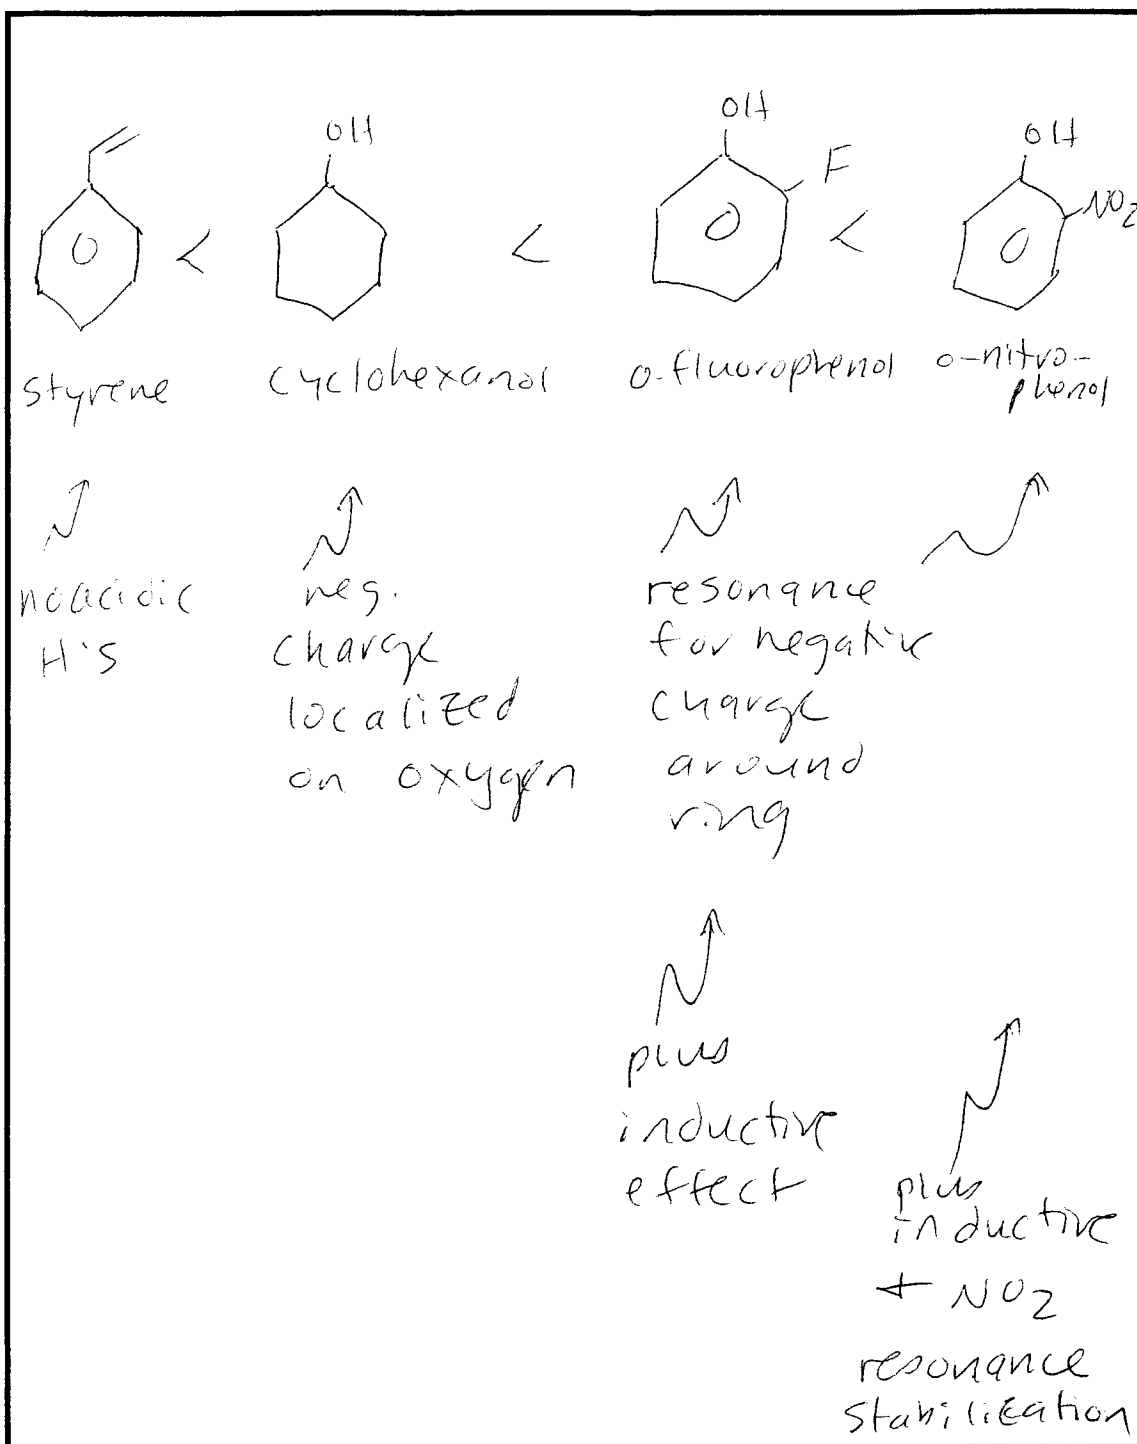 OH
OH
OH
F
NO2
< < <
styrene
cyclohexanol
o-fluorophenol
o-nitro-
phenol
no acidic
H's
neg.
charge
localized
on oxygen
resonance
for negative
charge
around
ring
plus
inductive
effect
plus
inductive
+ NO2
resonance
stabilization